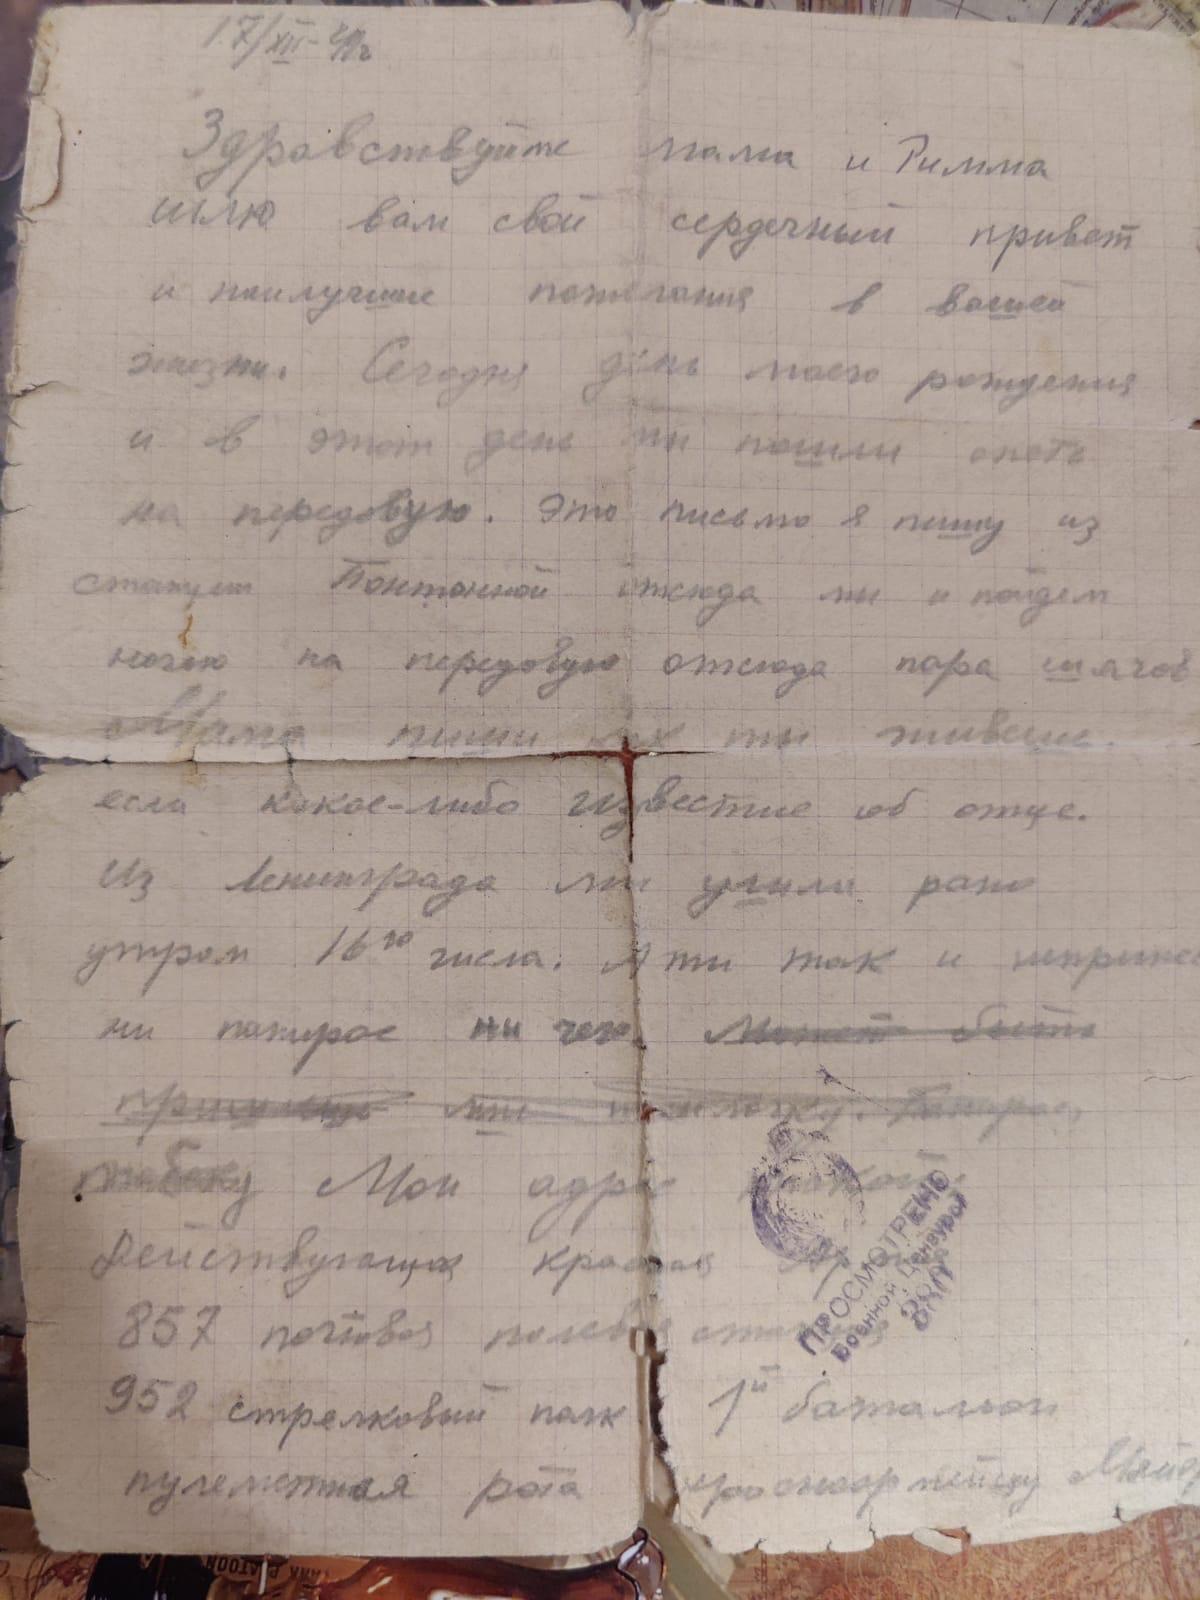 17/XII-41г
Здравствуйте мама и Римма
шлю вам свой сердечный привет
и наилучшие пожелания в вашей
жизни. Сегодня день моего рождения
и в этот день мы пошли опять
на передовую. Это письмо я пишу из
станции Понтонной отсюда мы и пойдем
ночью на передовую отсюда пара шагов
Мама пиши как ты живешь.
если какое-либо известие об отце.
Из Ленинграда мы ушли рано
утром 16го числа. А ты так и
ни папирос ни чего. Может быть
мне посылочку. Папирос,
табаку Мой адрес такой:
Действующая красная Армия
857 почтовая полевая станция
952 стрелковый полк 1й батальон
пулеметная рота красноармейцу
ПРОСМОТРЕНО
Военной Цензурой
TANK PLATOON